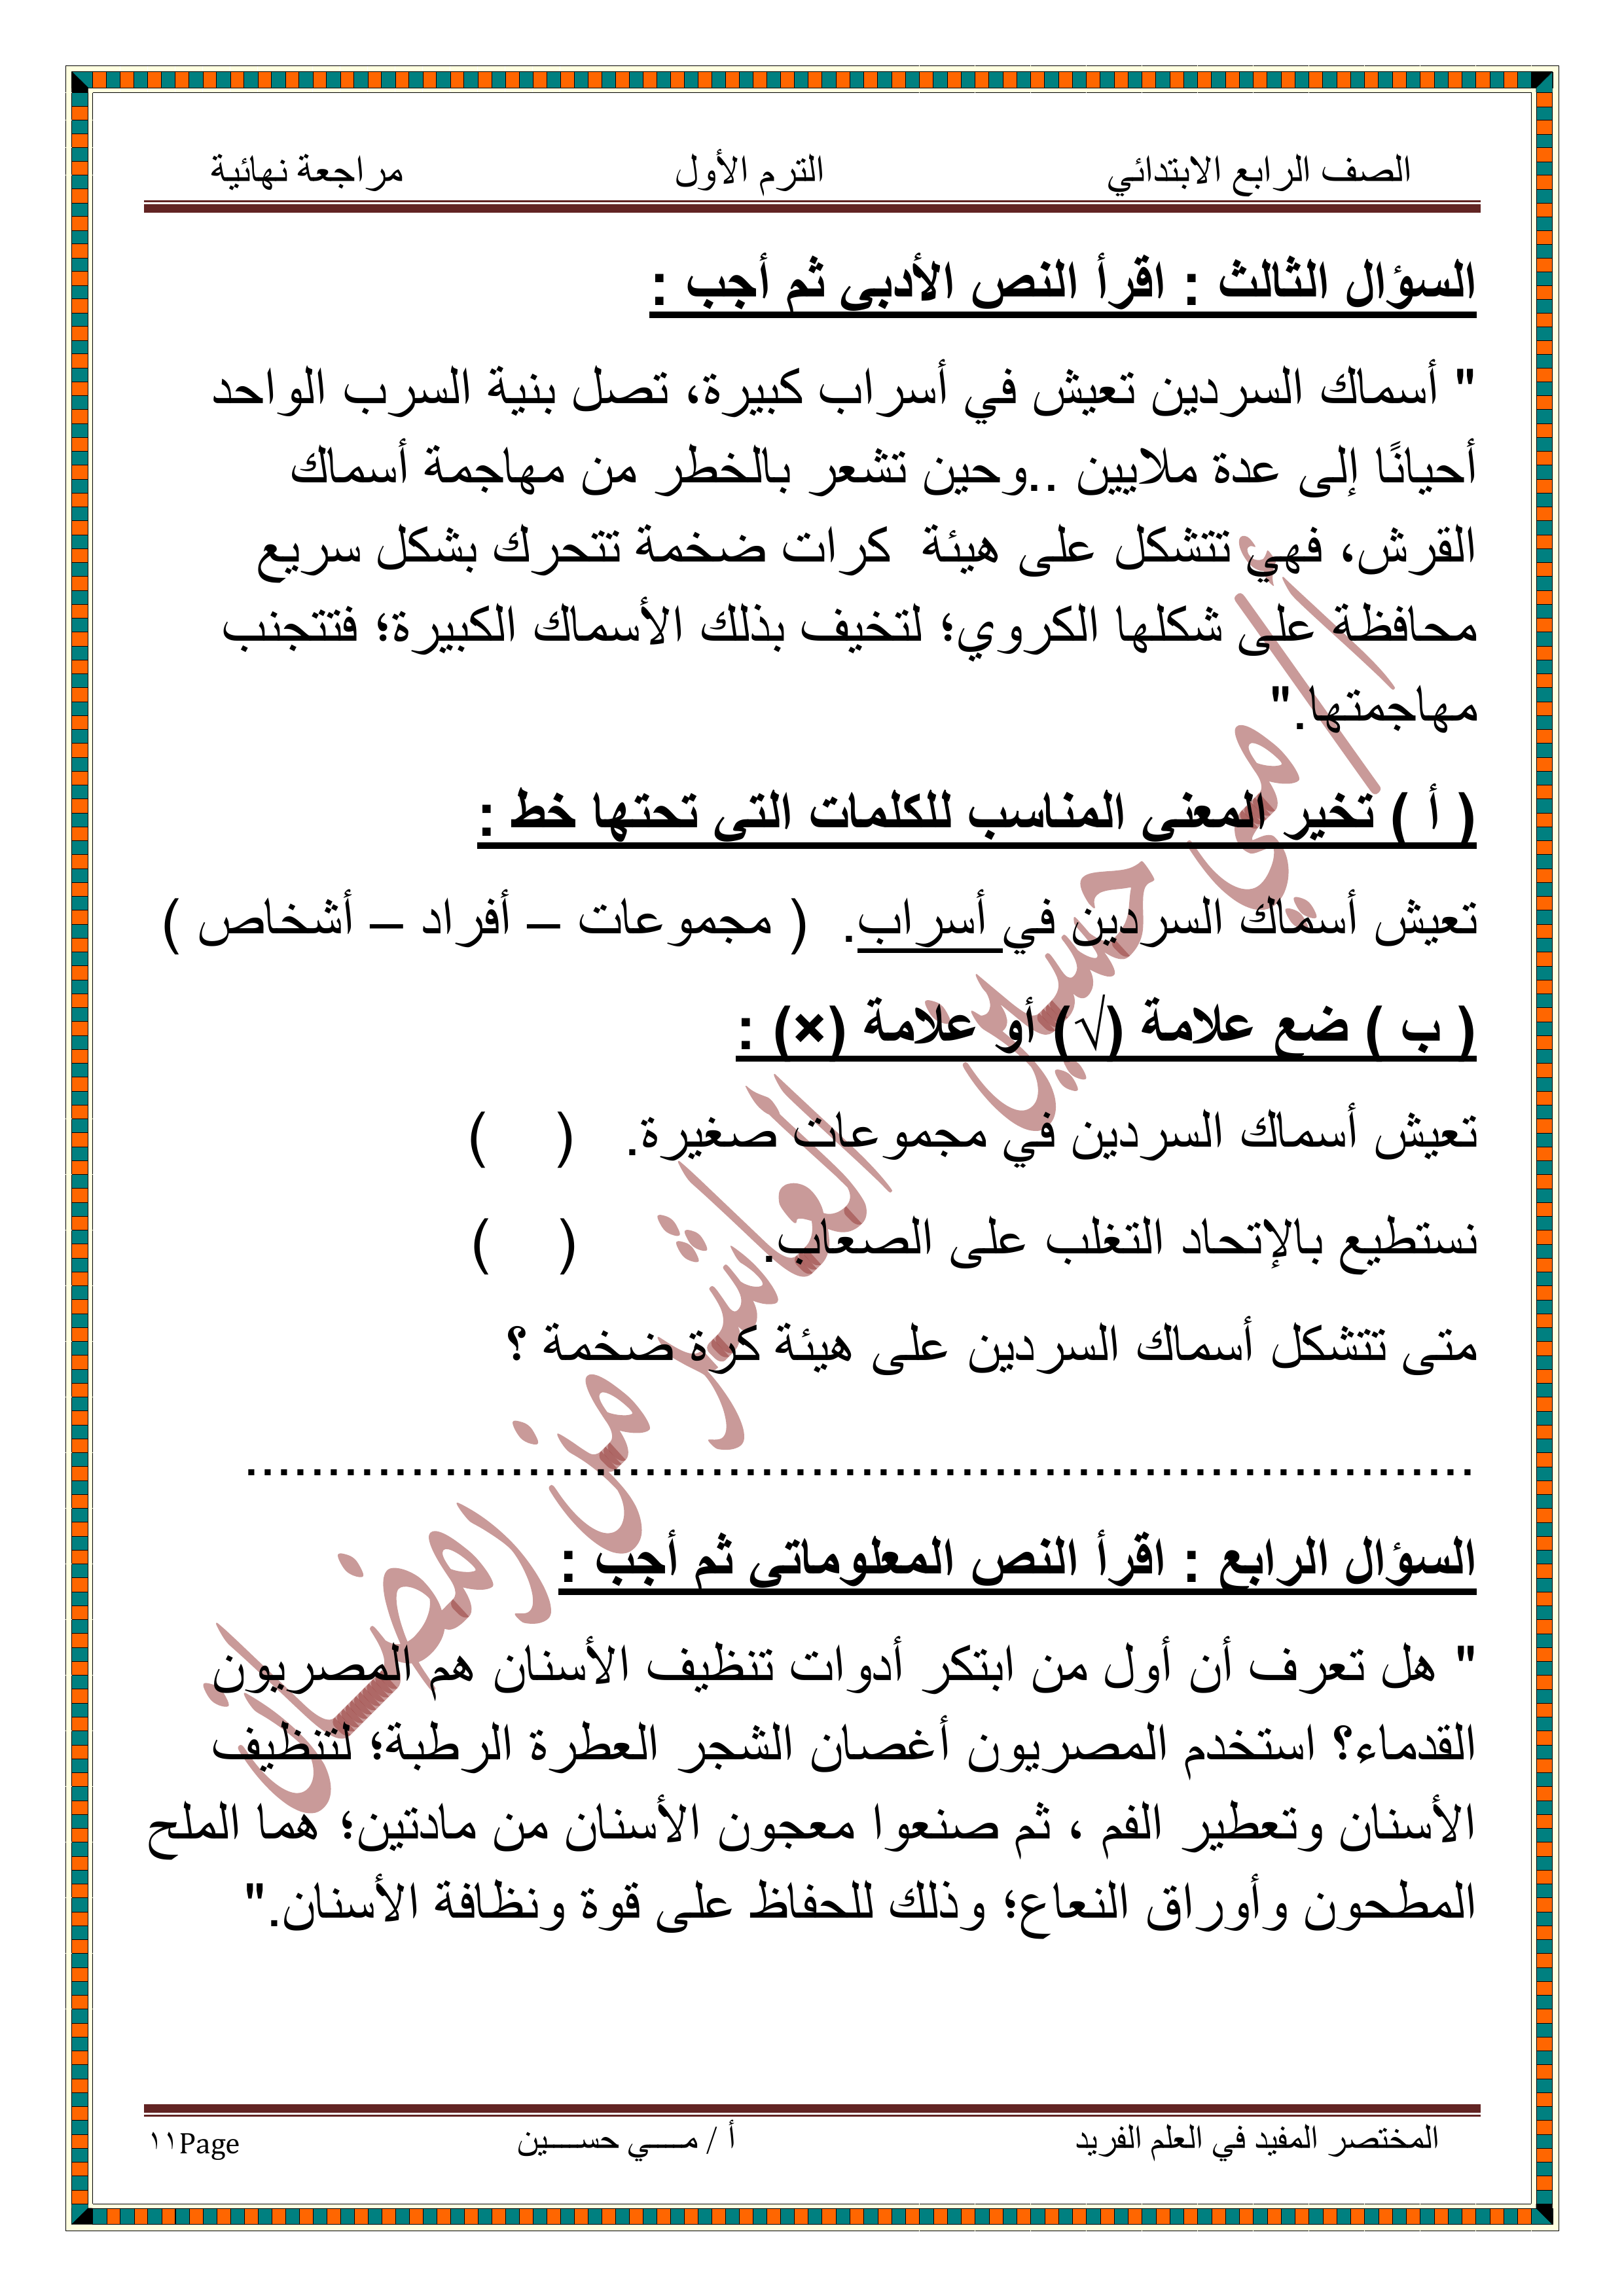 الصف الرابع الابتدائي الترم الأول مراجعة نهائية
السؤال الثالث : اقرأ النص الأدبي ثم أجب :
" أسماك السردين تعيش في أسراب كبيرة، تصل بنية السرب الواحد
أحيانًا إلى عدة ملايين ..وحين تشعر بالخطر من مهاجمة أسماك
القرش، فهي تتشكل على هيئة كرات ضخمة تتحرك بشكل سريع
محافظة على شكلها الكروي؛ لتخيف بذلك الأسماك الكبيرة؛ فتتجنب
مهاجمتها."
( أ ) تخير المعنى المناسب للكلمات التي تحتها خط :
تعيش أسماك السردين في أسراب. ( مجموعات – أفراد – أشخاص )
( ب ) ضع علامة (√) أو علامة (×) :
تعيش أسماك السردين في مجموعات صغيرة. ( )
نستطيع بالإتحاد التغلب على الصعاب. ( )
متى تتشكل أسماك السردين على هيئة كرة ضخمة ؟
..........................................................................
السؤال الرابع : اقرأ النص المعلوماتي ثم أجب :
" هل تعرف أن أول من ابتكر أدوات تنظيف الأسنان هم المصريون
القدماء؟ استخدم المصريون أغصان الشجر العطرة الرطبة؛ لتنظيف
الأسنان وتعطير الفم ، ثم صنعوا معجون الأسنان من مادتين؛ هما الملح
المطحون وأوراق النعاع؛ وذلك للحفاظ على قوة ونظافة الأسنان."
أ/ مي حسين العاشر من رمضان
المختصر المفيد في العلم الفريد أ / مــــي حســــين ١١Page